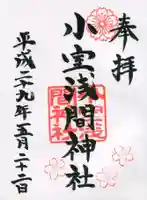 奉拝
小室浅間神社
平成二十九年五月二十二日